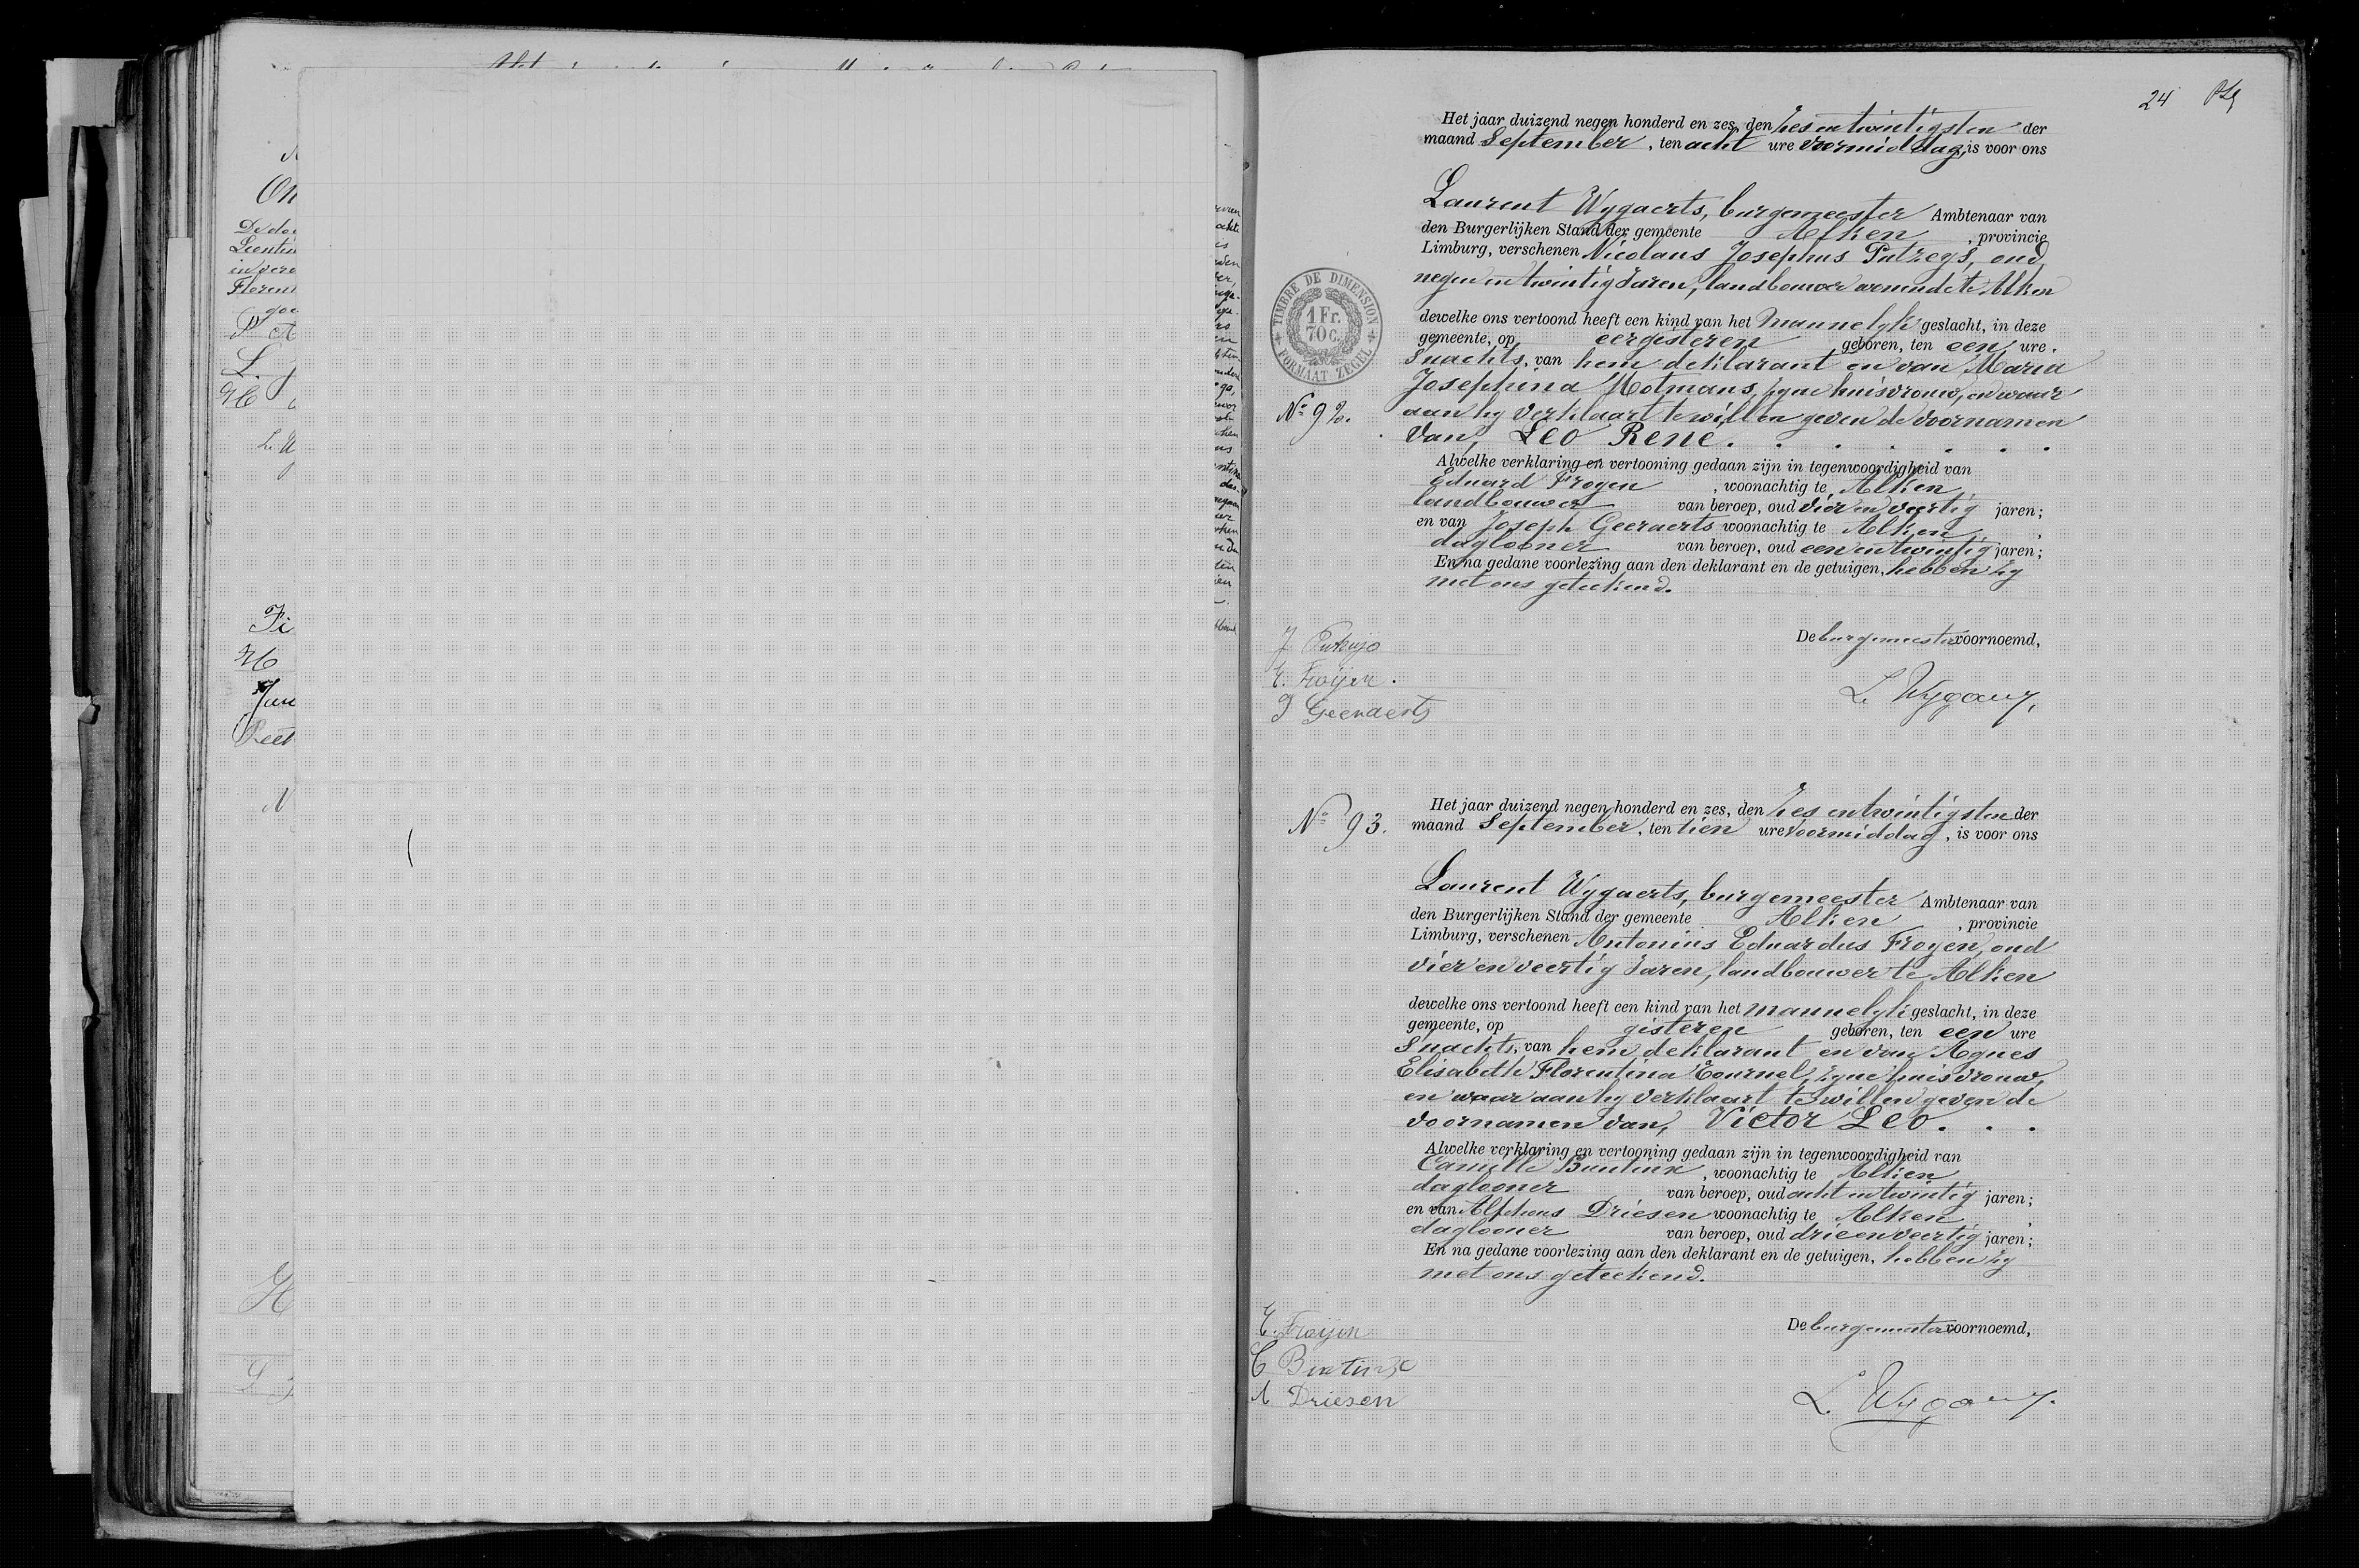 24
Het jaar duizend negen honderd en zes, den zes en twintigsten der
maand September, ten acht ure voormiddag, is voor ons
Laurent Wygaerts, burgemeester Ambtenaar van
den Burgerlijken Stand der gemeente Alken, provincie
Limburg, verschenen Nicolaus Josephus Putzeys, oud
negen en twintig Jaren, landbouwer wonende te Alken
dewelke ons vertoond heeft een kind van het mannelyk geslacht, in deze
gemeente, op eergisteren geboren, ten een ure
Snachts, van hem deklarant en van Maria
Josephina Hotmans, zyne huisvrouw, en waar
aan hy verklaart te willen geven de voornamen
van, Leo Rene. . . . . . .
TIMBRE DE DIMENSION
1 Fr. 70 C.
FORMAAT ZEGEL
No 92.
Alwelke verklaring en vertooning gedaan zijn in tegenwoordigheid van
Eduard Froyen, woonachtig te Alken,
landbouwer van beroep, oud vier en veertig jaren;
en van Joseph Geeraerts woonachtig te Alken,
daglooner van beroep, oud een en twintig jaren;
En na gedane voorlezing aan den deklarant en de getuigen, hebben zy
met ons geteekend.
De burgemeester voornoemd,
E. Froÿen.
J Geeraerts
No 93.
Het jaar duizend negen honderd en zes, den zes en twintigsten der
maand September, ten tien ure voormiddag, is voor ons
Laurent Wygaerts, burgemeester Ambtenaar van
den Burgerlijken Stand der gemeente Alken, provincie
Limburg, verschenen Antonius Eduardus Froyen, oud
vier en veertig Jaren, landbouwer te Alken
dewelke ons vertoond heeft een kind van het mannelyk geslacht, in deze
gemeente, op gisteren geboren, ten een ure
Snachts, van hem deklarant en van Agnes
Elisabeth Florentina Cournel, zyne huisvrouw,
en waar aan hy verklaart te willen geven de
voornamen van, Victor Leo. . .
Alwelke verklaring en vertooning gedaan zijn in tegenwoordigheid van
Camille Buntinx, woonachtig te Alken
daglooner van beroep, oud acht en twintig jaren;
en van Alphons Driesen woonachtig te Alken,
daglooner van beroep, oud drie en veertig jaren;
En na gedane voorlezing aan den deklarant en de getuigen, hebben zy
met ons geteekend.
De burgemeester voornoemd,
E. Froÿen
C Buntinx
A Driesen